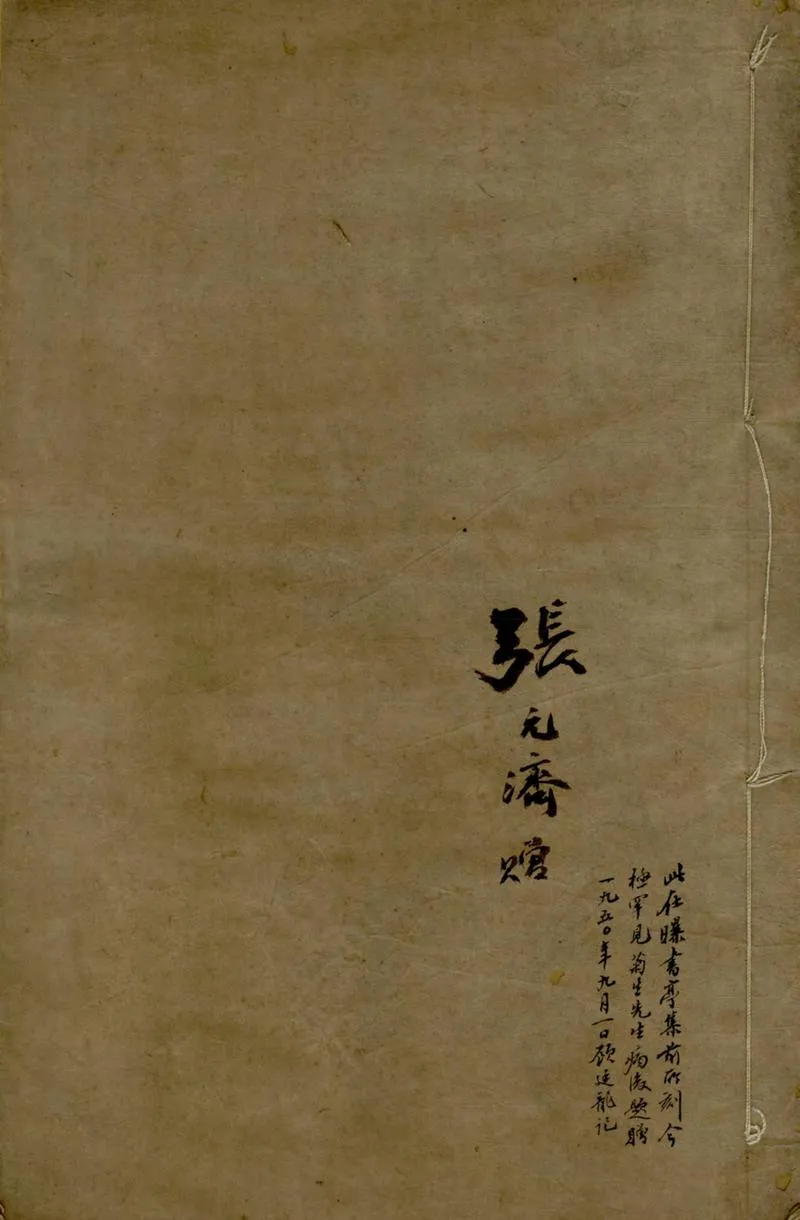 此在曝書亭集前所刻今
極罕見菊生先生病後題贈
一九五〇年九月一日顧廷龍記
張元濟贈